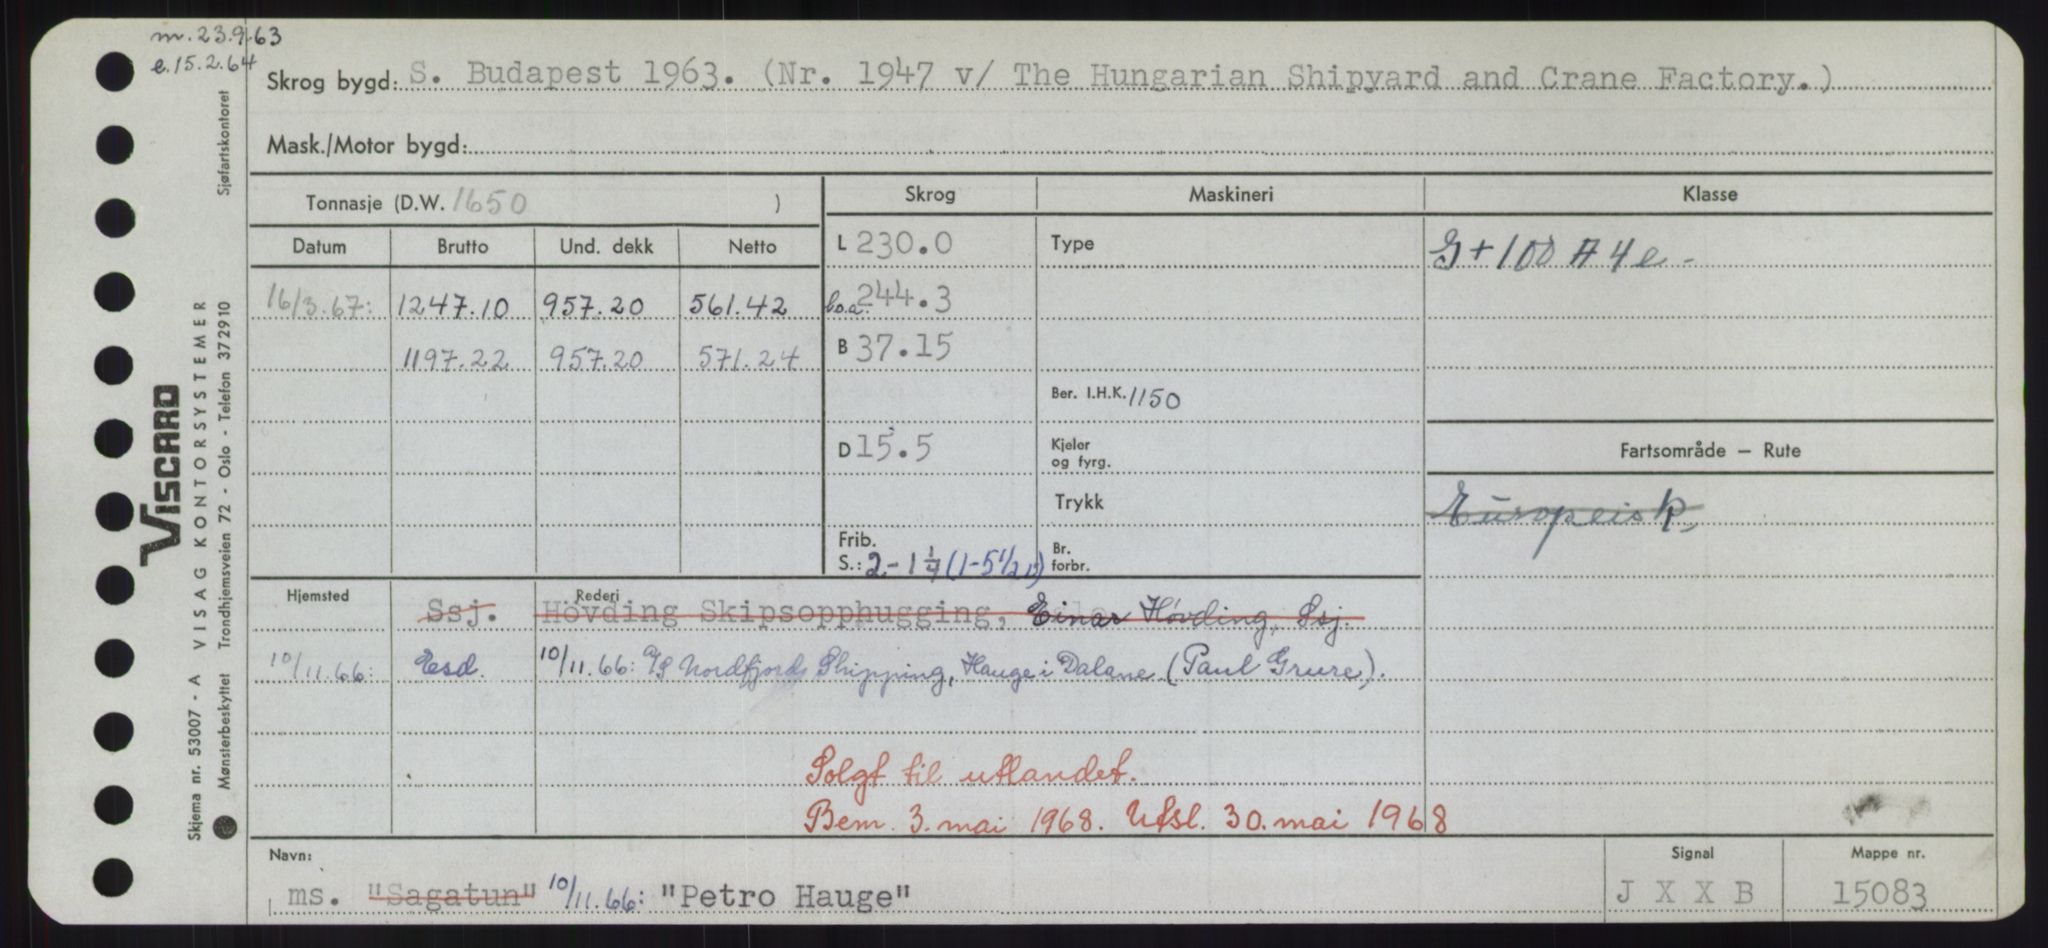 m. 23.9.63
e. 15.2.64
Skrog bygd: S. Budapest 1963. (Nr. 1947 v/ The Hungarian Shipyard and Crane Factory.)
Mask./Motor bygd:
Tonnasje (D.W. 1650 )
Skrog Maskineri Klasse
Datum Brutto Und. dekk Netto
L 230.0 Type G + 100 A 4 e -
16/3.67: 1247.10 957.20 561.42 l.o.a. 244.3
1197.22 957.20 571.24 B 37.15
Ber. I.H.K. 1150
D 15.5 Kjeler og fyrg. Fartsområde — Rute
Trykk Europeisk
Frib. S.: 2-1 1/4 (1-5 1/2 ) Br. forbr.
Hjemsted Ssj. Rederi Hövding Skipsopphugging, Einar Høvding, Ssj.
10/11.66: Esd. 10/11.66: A/S Nordfjord Shipping, Hauge i Dalane (Paul Grure).
Solgt til utlandet.
Bem. 3. mai 1968. Utsl. 30. mai 1968
Navn: Signal Mappe nr.
ms. "Sagatun" 10/11.66: "Petro Hauge" J X X B 15083
VISCARD
VISAG KONTORSYSTEMER
Sjøfartskontoret
Skjema nr. 53007 - A
Mønsterbeskyttet Trondhjemsveien 72 - Oslo - Telefon 372910